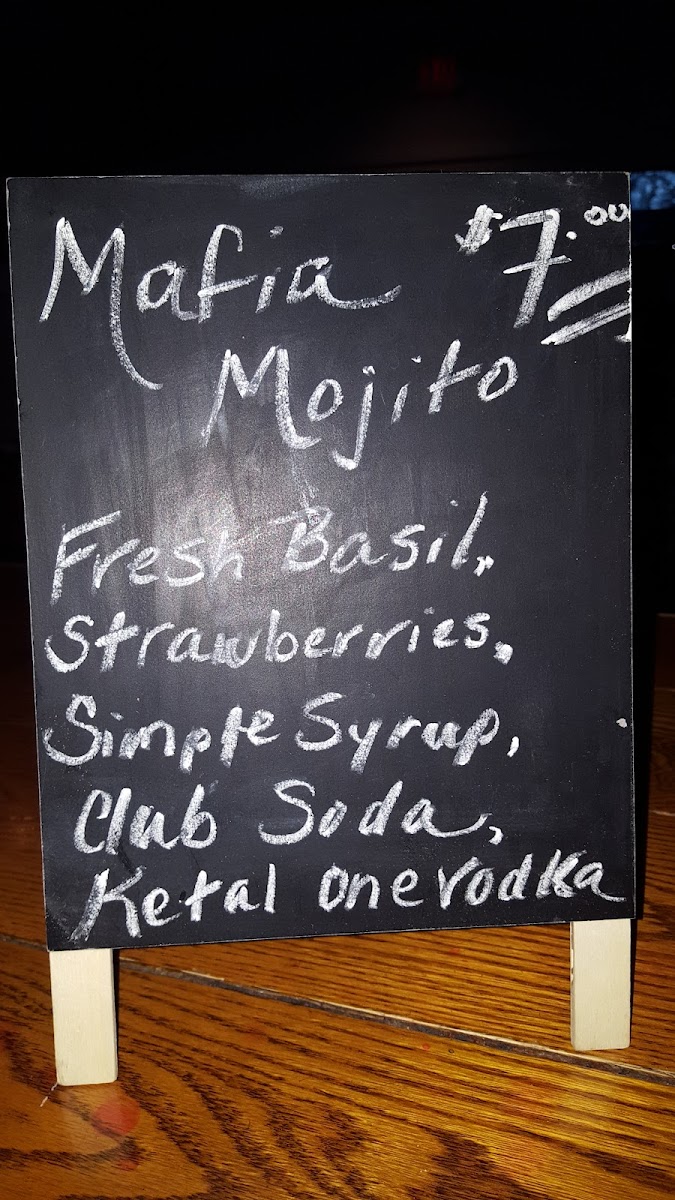 Mafia $7.00
Mojito
Fresh Basil,
Strawberries,
Simple Syrup,
Club Soda,
Ketal One Vodka